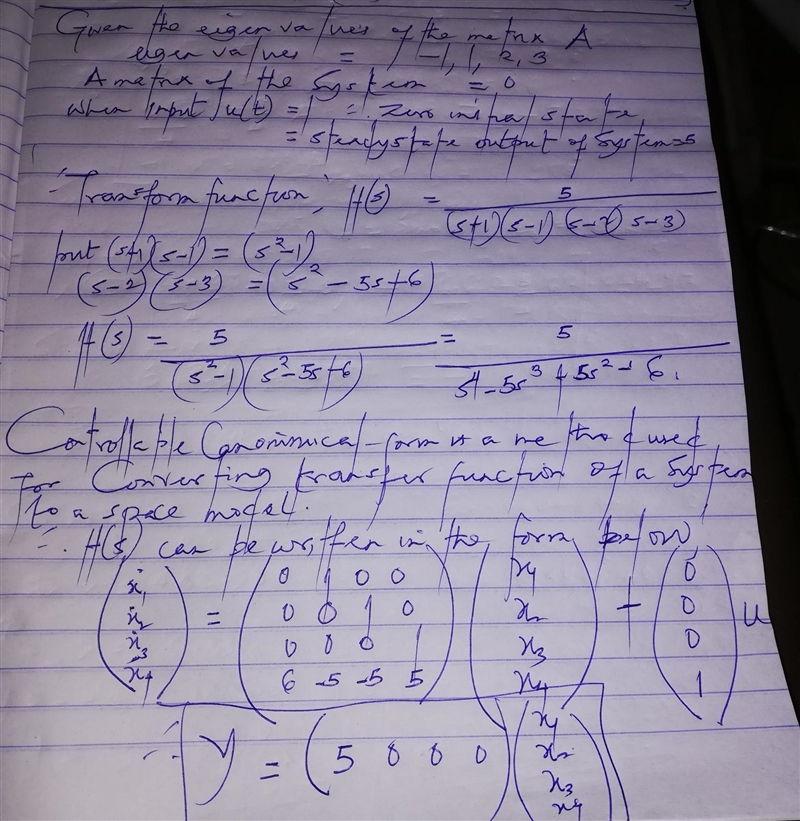 Given the eigen values of the matrix A
eigen values = -1, 1, 2, 3
A matrix of the System = 0
when input u(t) = 1 = zero initial state
= steady state output of System = 5
∴ Transform function, H(s) = 5 / (s+1)(s-1)(s-2)(s-3)
put (s+1)(s-1) = (s²-1)
(s-2)(s-3) = (s² - 5s+6)
H(s) = 5 / (s²-1)(s²-5s+6) = 5 / s⁴-5s³+5s²+ 6.
Controllable Canonimical-form is a method used
for Converting transfer function of a System
to a space model.
∴ H(s) can be written in the form below
(ẋ₁ ẋ₂ ẋ₃ ẋ₄) = (0 1 0 0
0 0 1 0
0 0 0 1
6 -5 -5 5) (x₁ x₂ x₃ x₄) + (0 0 0 1) u
∴ Y = (5 0 0 0) (x₁ x₂ x₃ x₄)